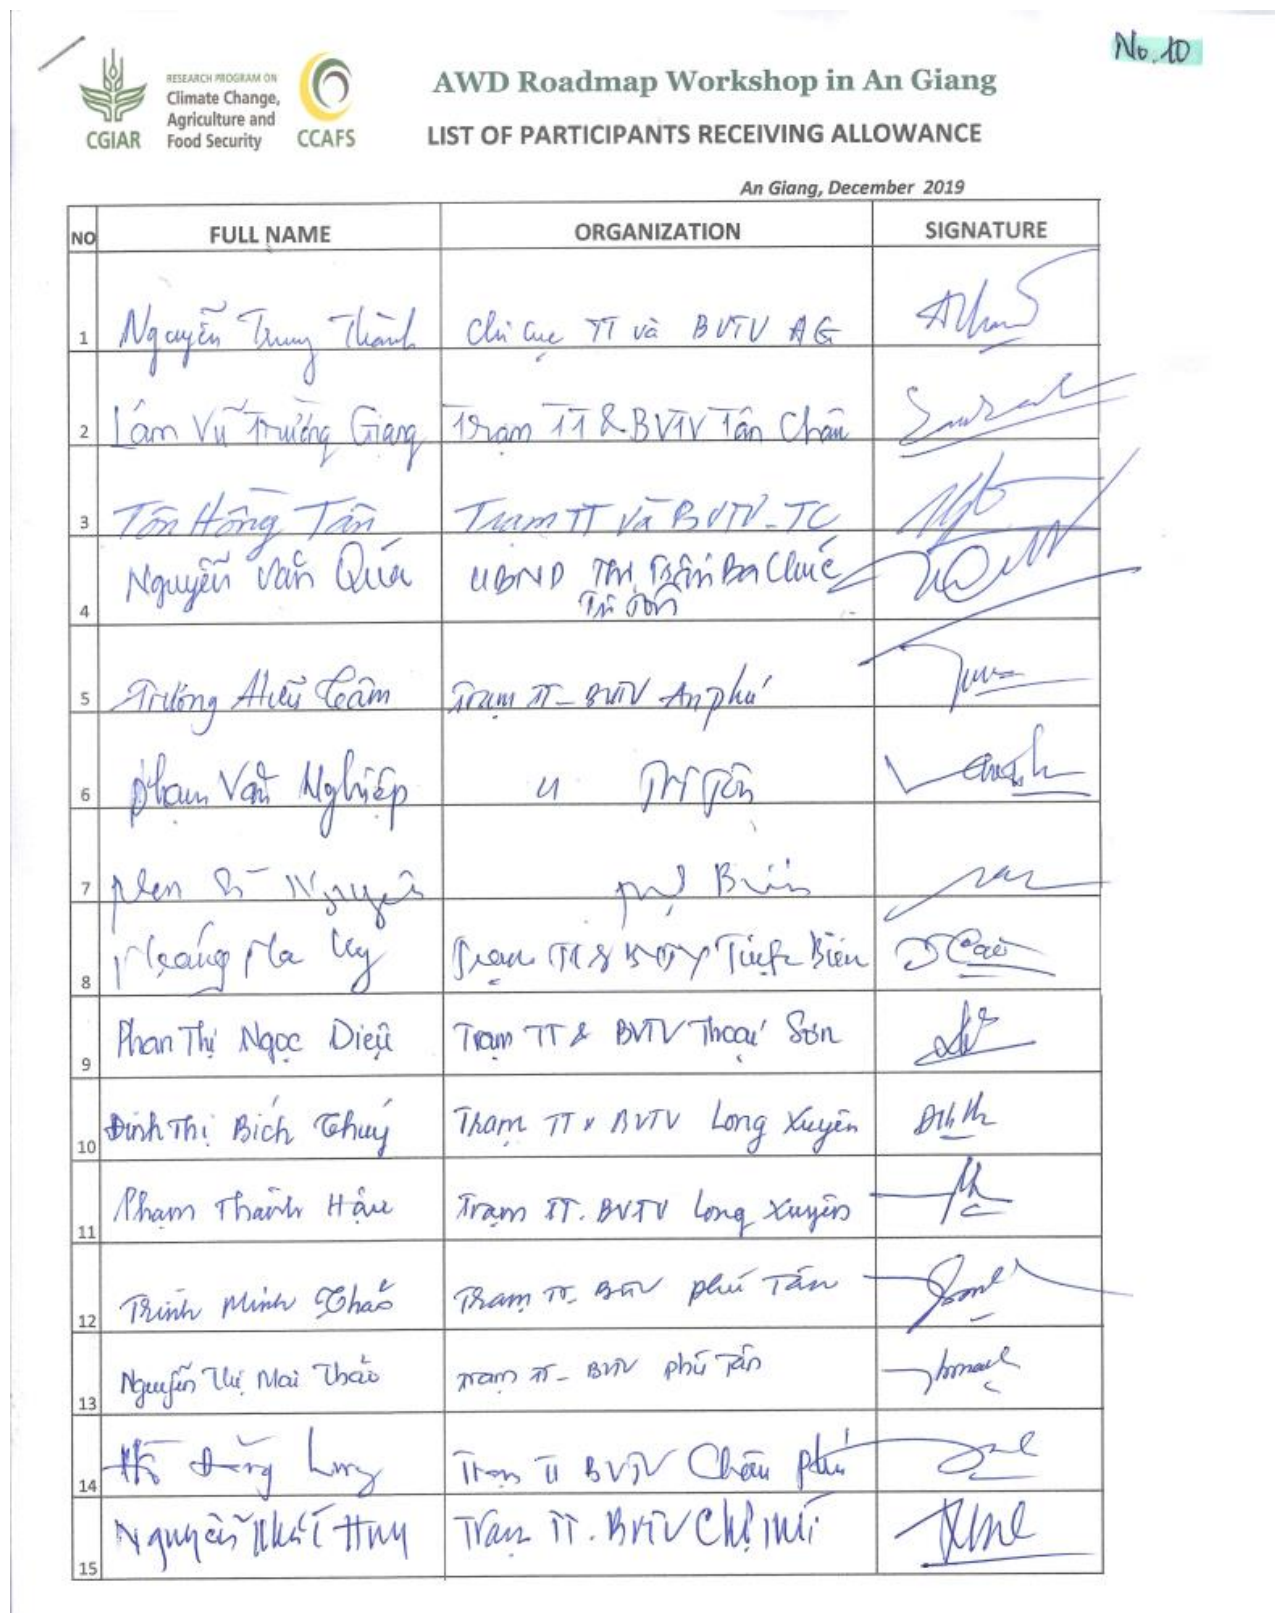 No. 10
RESEARCH PROGRAM ON
Climate Change,
Agriculture and
Food Security
CGIAR
CCAFS
AWD Roadmap Workshop in An Giang
LIST OF PARTICIPANTS RECEIVING ALLOWANCE
An Giang, December 2019
NO FULL NAME ORGANIZATION SIGNATURE
1 Nguyễn Trung Thành Chi cục TT và BVTV AG
2 Lâm Vũ Trường Giang Trạm TT & BVTV Tân Châu
3 Tôn Hồng Tân Trạm TT và BVTV - TC
4 Nguyễn Văn Quá UBND Thị Trấn Ba Chúc
Tri Tôn
5 Trương Hiếu Tâm Trạm TT - BVTV An phú
6 Phạm Văn Nghiệp u Tri Tôn
7
8 Trạm TT & BVTV Tịnh Biên
9 Phan Thị Ngọc Diệu Trạm TT & BVTV Thoại Sơn
10 Đinh Thị Bích Thuý Trạm TT & BVTV Long Xuyên
11 Phạm Thành Hậu Trạm TT. BVTV Long Xuyên
12 Trịnh Minh Thảo Trạm TT - BVTV phú Tân
13 Nguyễn Thị Mai Thảo Trạm TT - BVTV phú Tân
14 Hồ Đăng Long Trạm TT BVTV Châu phú
15 Nguyễn Nhất Huy Trạm TT. BVTV Chợ mới